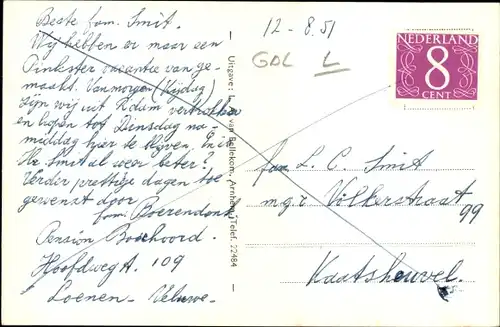 Beste fam. Smit.
Wij hebben er maar een
Pinkster vacantie van ge-
maakt. Vanmorgen (Vrijdag)
zijn wij uit R'dam vertrokken
en hopen tot Dinsdag na-
middag hier te blijven. En is
Hr. Smit al weer beter?
Verder prettige dagen toe
gewenst door
fam. Boerendonk
Pension Boschoord.
Hoofdweg A. 109
Loenen - Veluwe.
Uitgave: van Bellekom, Arnhem, Telef. 22484
12-8.51
GDL L
NEDERLAND
8
CENT
fam L. C. Smit
mgr. Völkerstraat
99
Kaatsheuvel.